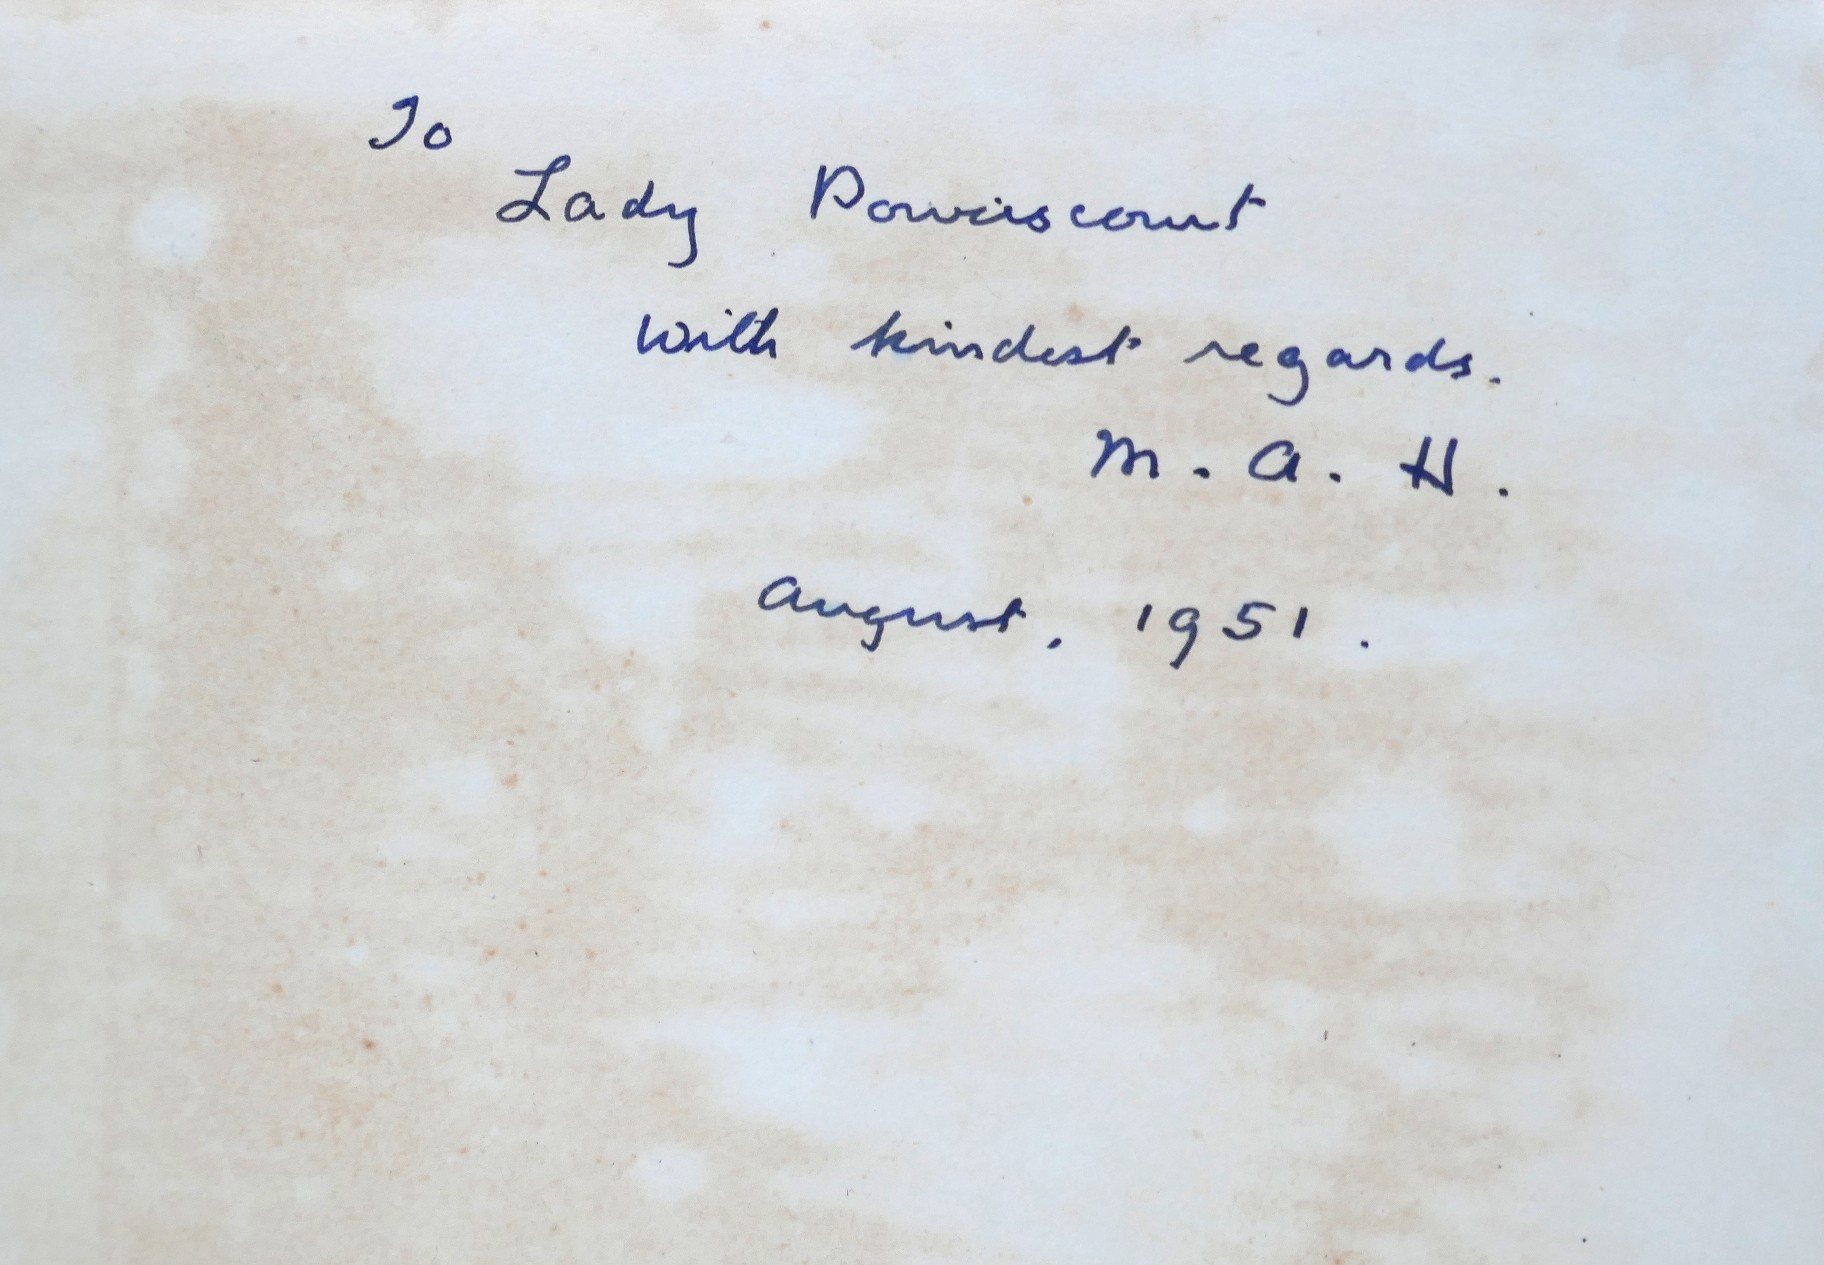 To
Lady Powerscourt
with kindest regards.
M. A. H.
August, 1951.